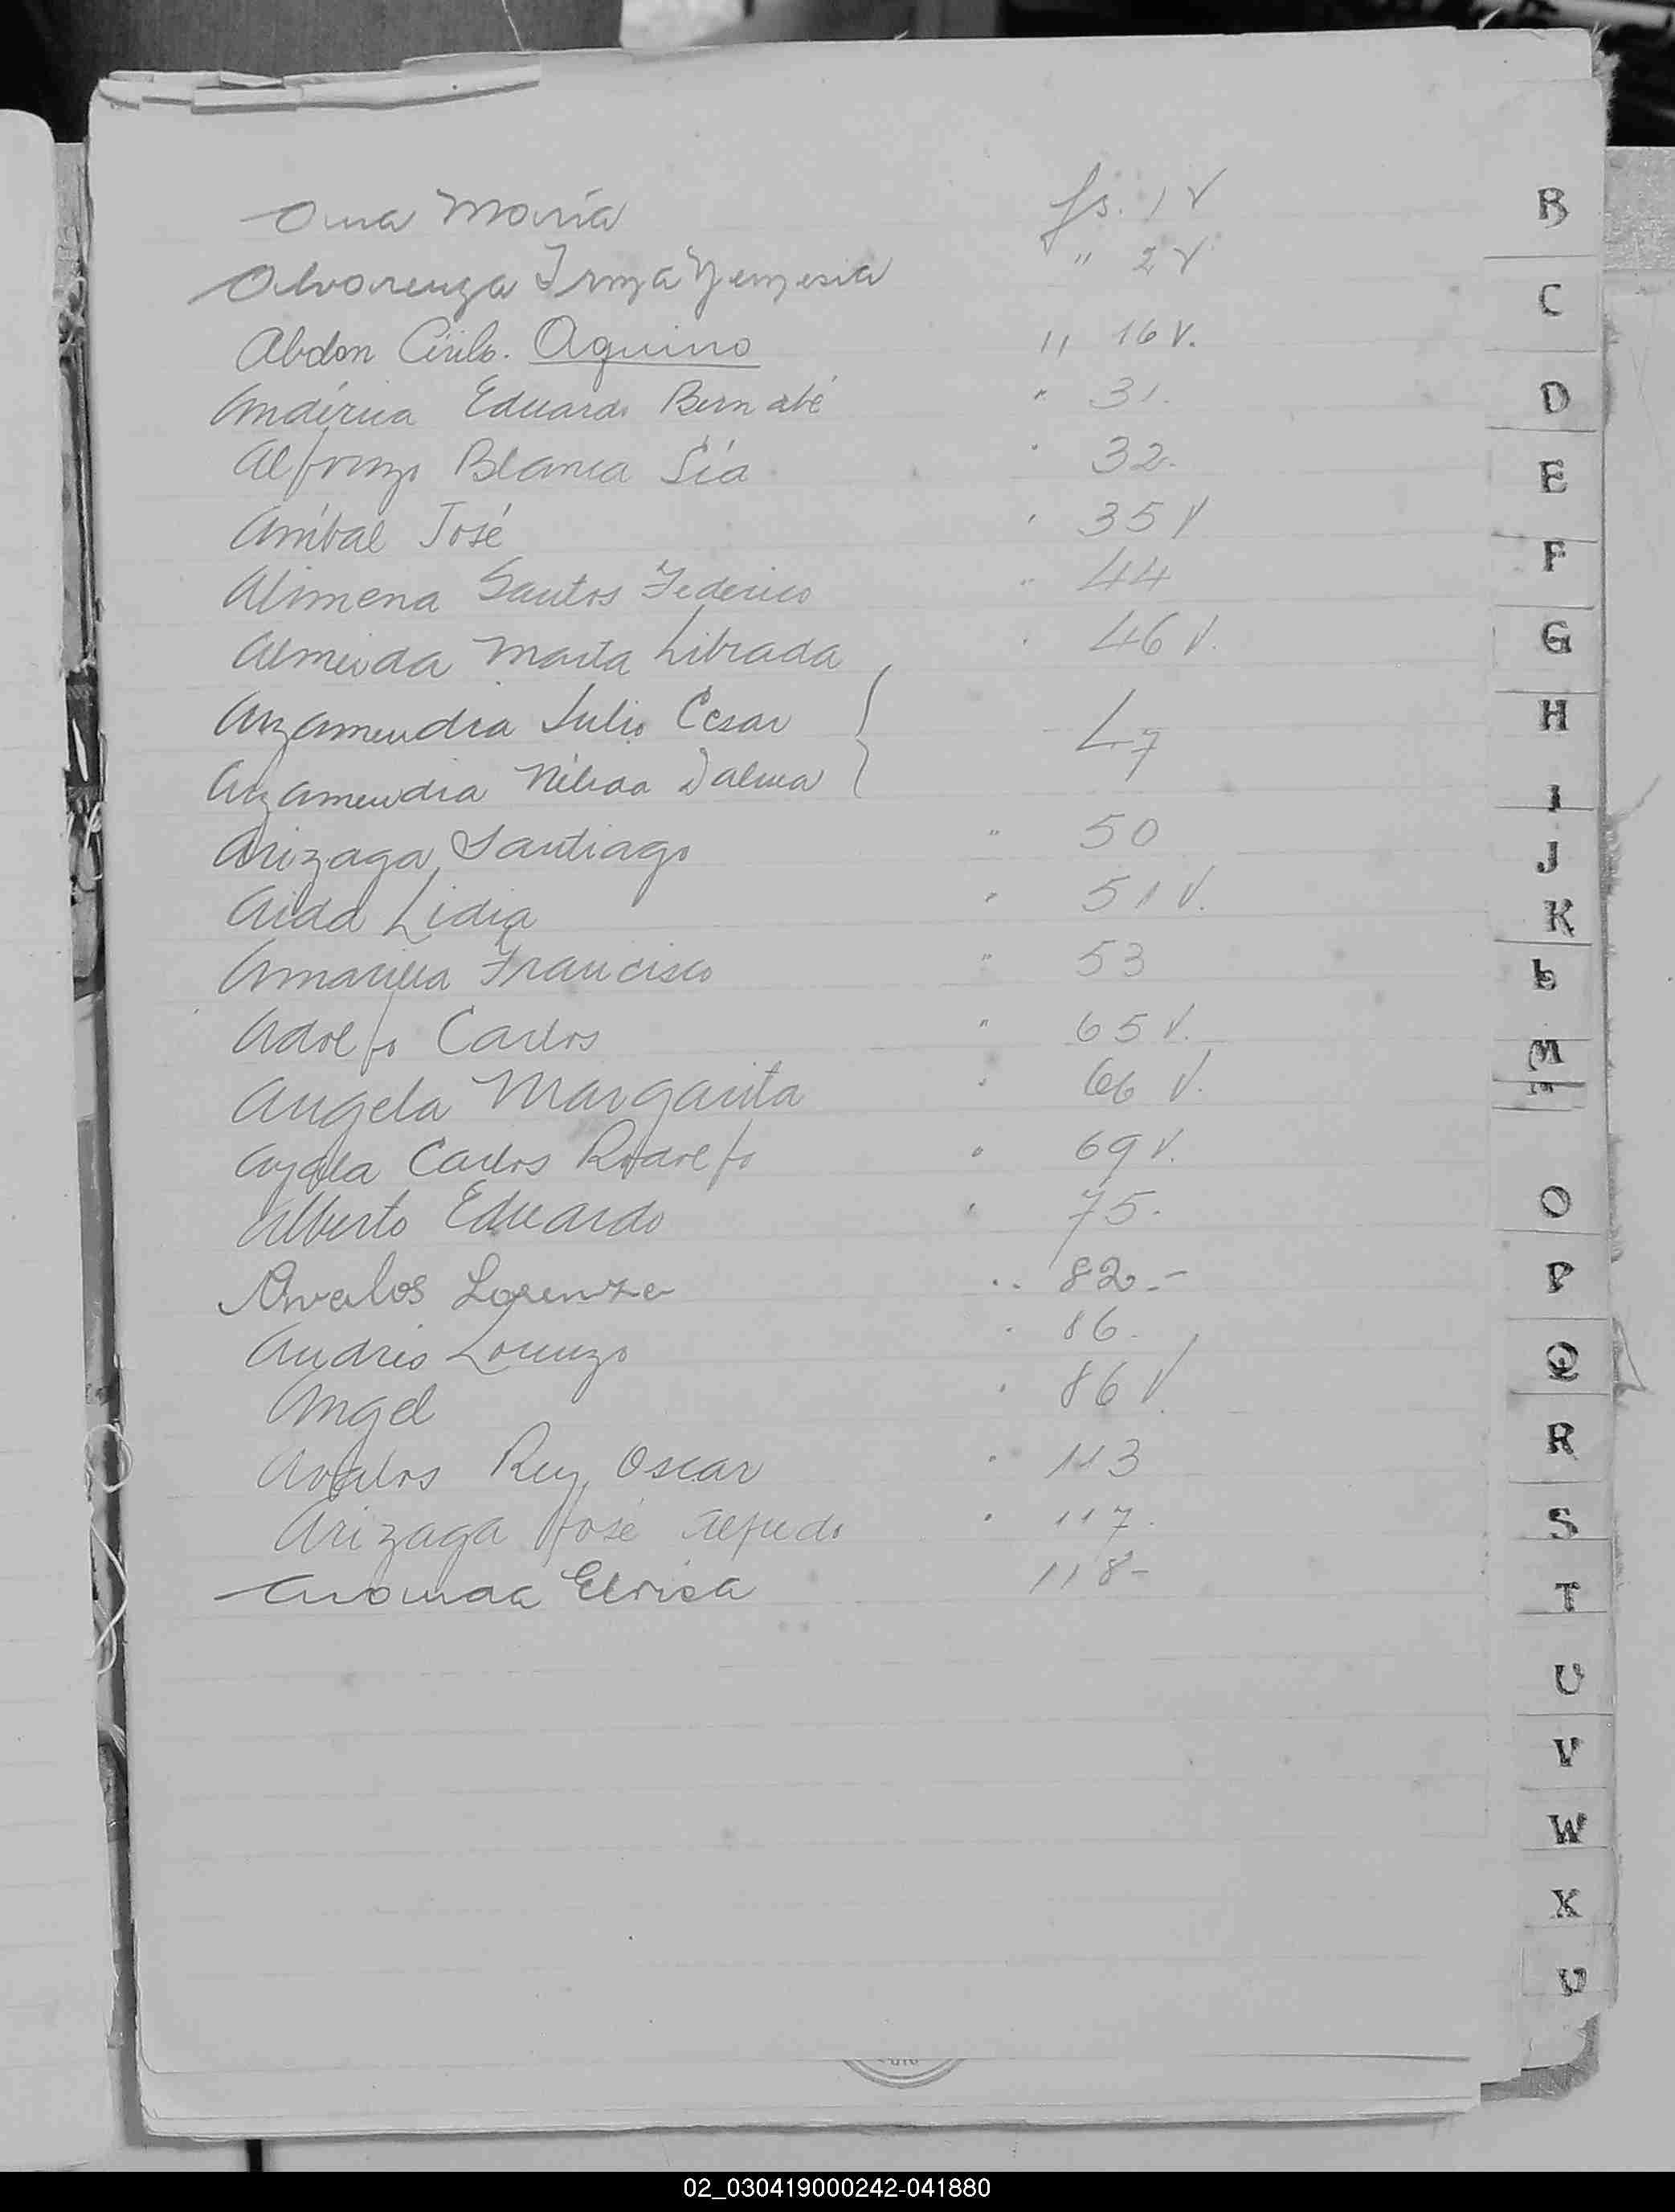 Ana María fs. 1 V
Alvarenga Irma Yemesia " 2 V
Abdon Cirilo. Aquino " 16 V.
Eduardo Bernabé " 31.
Alfonzo Blanca Lía " 32.
Aníbal José " 35 V
Alimena Santos Federico " 44
Almeida Marta Librada " 46 V.
Anzamendia Julio Cesar } 47
Anzamendia Nélida Dalma }
Arizaga Santiago " 50
Aida Lidia " 51 V.
Amarilla Francisco " 53
Adolfo Carlos " 65 V.
Angela Margarita " 66 V.
Ayala Carlos Rodolfo " 69 V.
Alberto Eduardo " 75.
Avalos Lorenza " 82.-
Andrés Lorenzo " 86.
Angel " 86 V.
Avalos Rey Oscar " 113
Arizaga José Alfredo " 117.
Eloisa 118-
B
C
D
E
F
G
H
I
J
K
L
M
O
P
Q
R
S
T
U
V
W
X
02_030419000242-041880